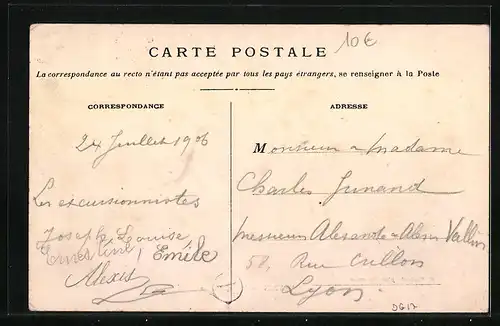 10€
CARTE POSTALE
La correspondance au recto n'étant pas acceptée par tous les pays étrangers, se renseigner à la Poste
CORRESPONDANCE
ADRESSE
24 Juillet 1906
Monsieur & Madame
Charles
Les excursionnistes
Messieurs Alexandre & Alexis
Joseph Louise
Ernestine, Emile
58, Rue Crillon
Alexis
Lyon.